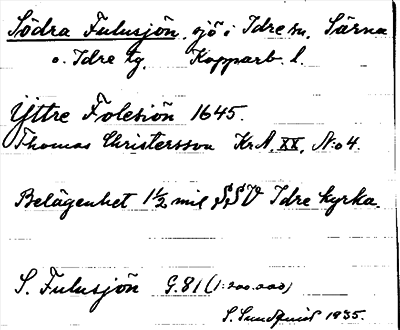 Södra Fulusjön, sjö i Idre sn, Särna
o. Idre tg. Kopparb. l.
Yttre Folesiön 1645.
Thomas Christersson KrA, XX, N:o 4.
Belägenhet 1½ mil SSV Idre kyrka.
S. Fulusjön G.81 (1:200.000)
S. Sundquist 1935.